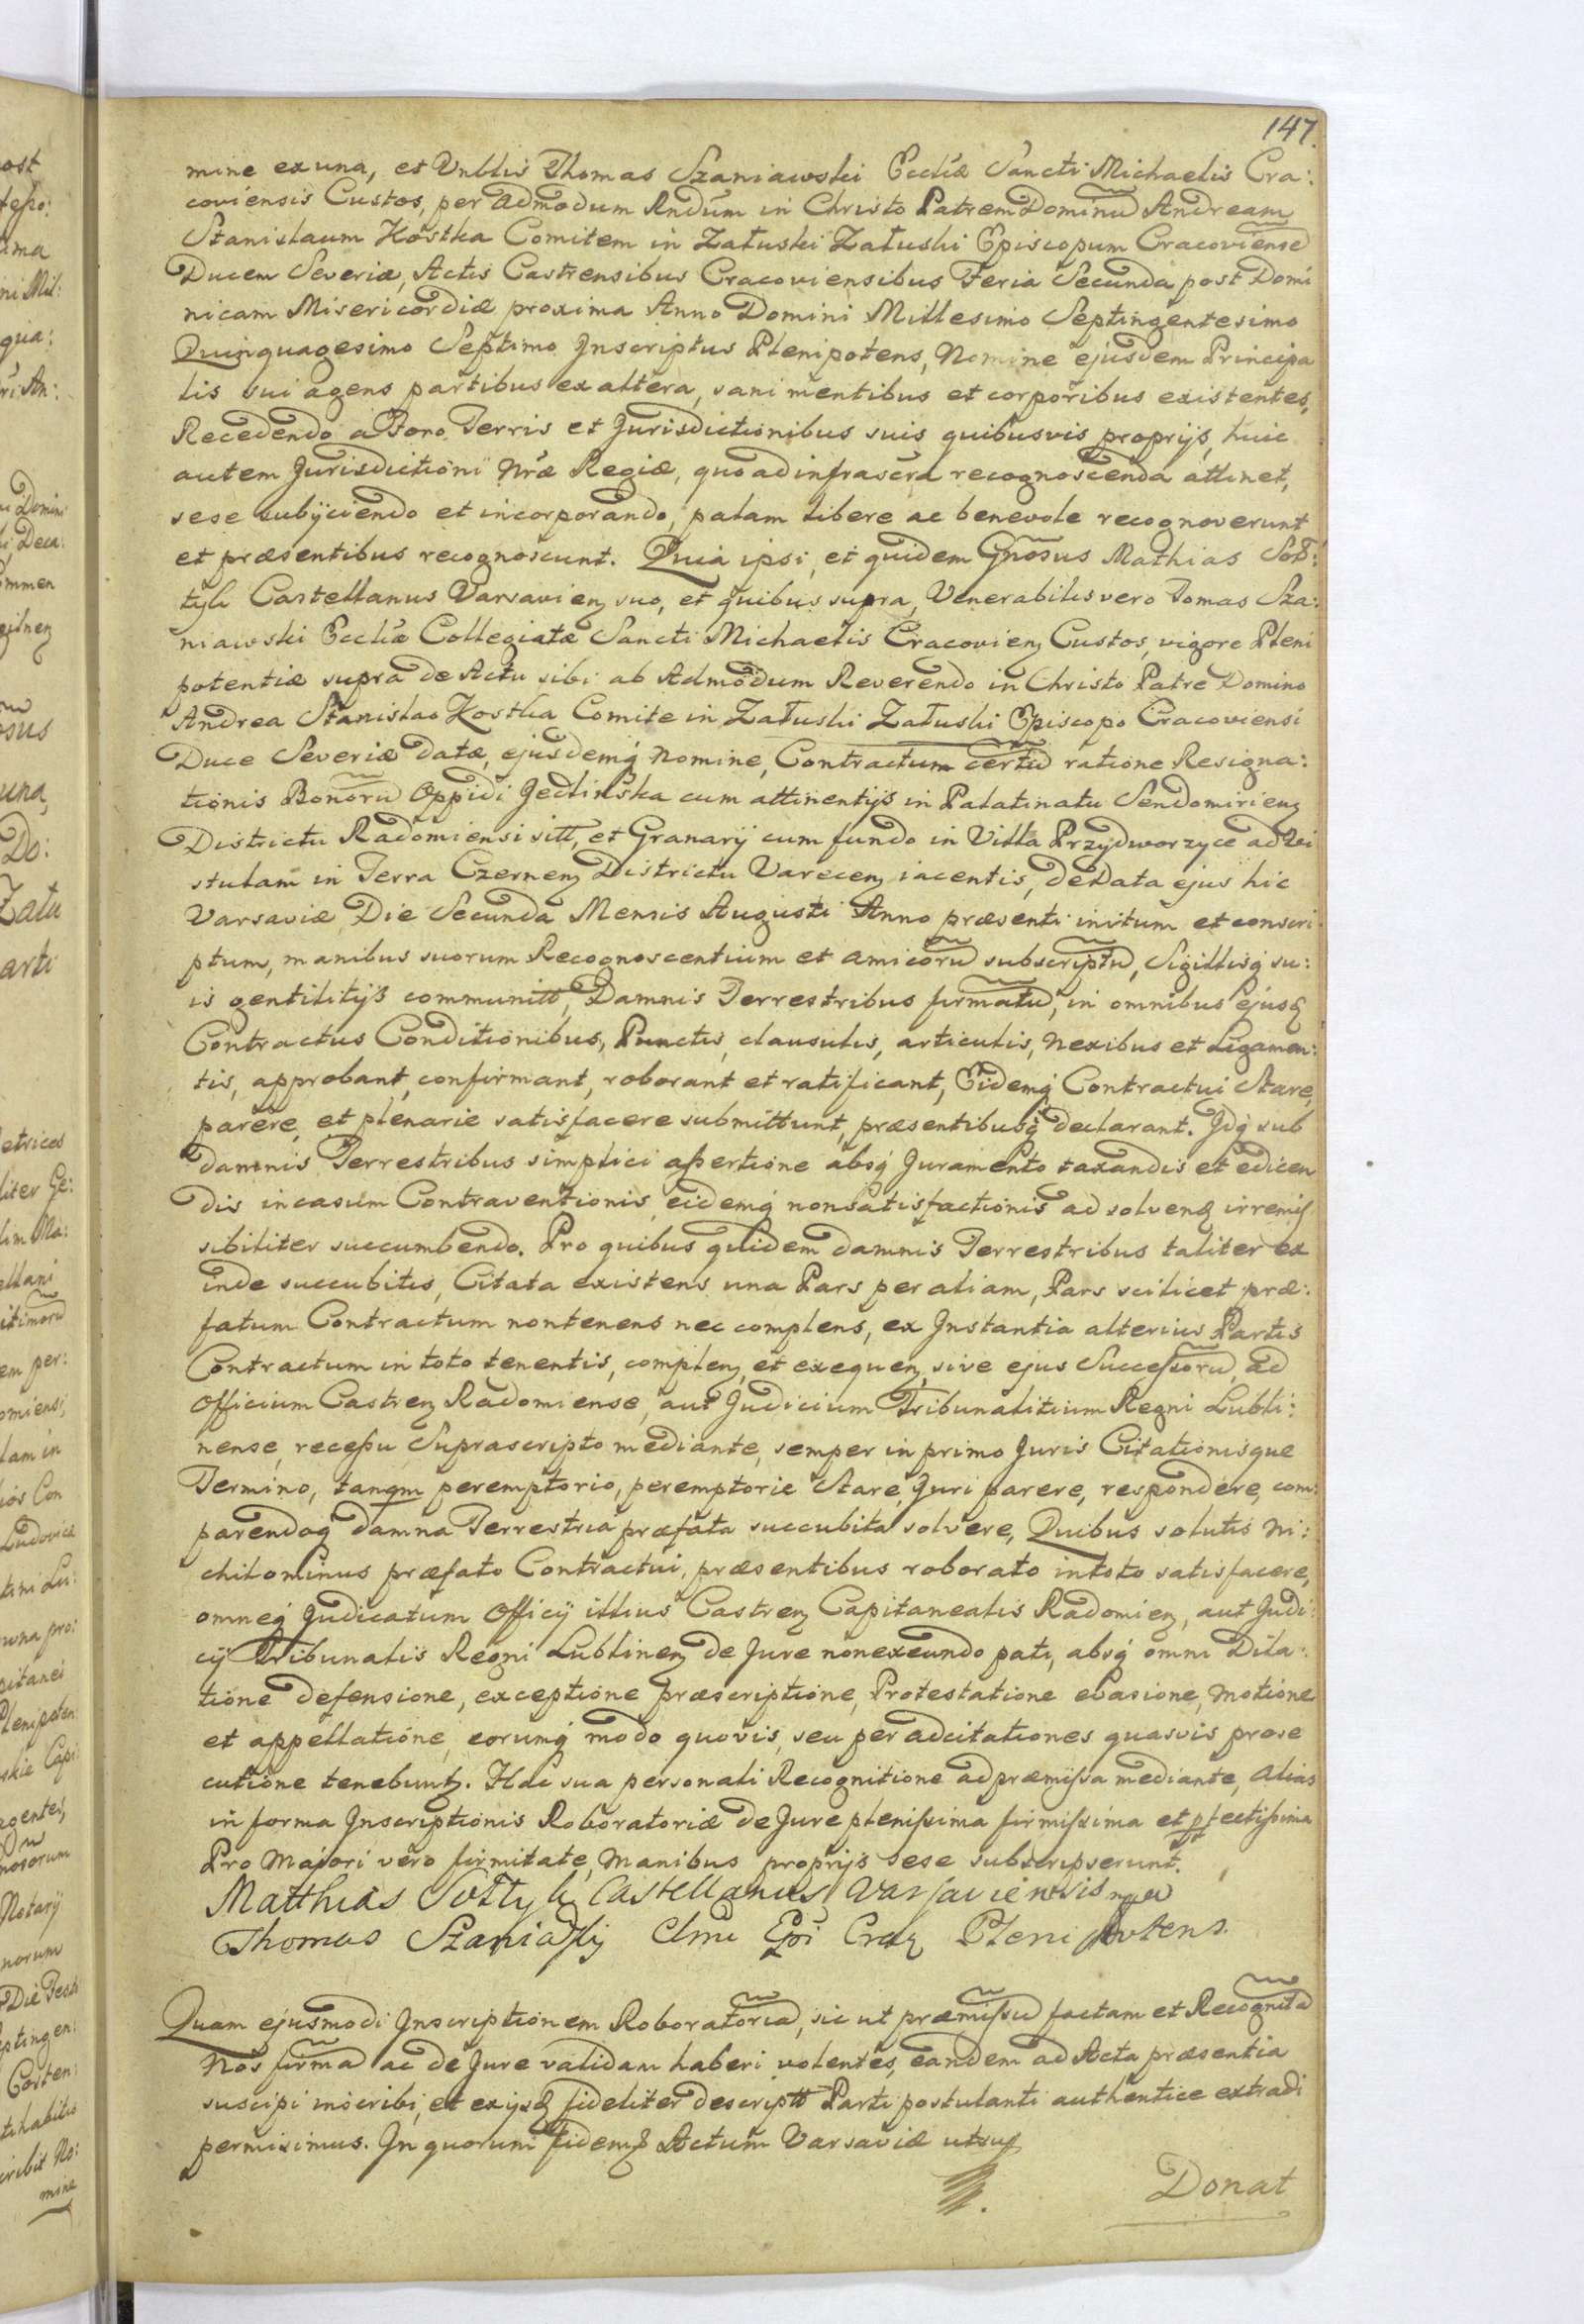 147.
mine ex una, et Vnblis Thomas Szaniawski Eccliæ Sancti Michaelis Cra:
coviensis Custos, per admodum Rndum in Christo Patrem Dominũ Andream
Stanislaum Kostka Comitem in Załuski Załuski Episcopum Cracoviense
Ducem Severiæ, Actis Castrensibus Cracoviensibus Feria Secunda post Domi
nicam Misericordiæ proxima Anno Domini Millesimo Septingentesimo
Quinquagesimo Septimo Inscriptus Plenipotens, Nomine ejusdem Principa
lis sui agens partibus ex altera, sani mentibus et corporibus existentes,
Recedendo a Foro Terris et Jurisdictionibus suis quibusvis proprijs, huic
autem Jurisdictioni Nræ Regiæ, quo ad infrascra recognoscenda attinet,
sese subijciendo et incorporando, palam libere ac benevole recognoverunt
et præsentibus recognoscunt. Quia ipsi, et quidem Gnõsus Mathias Soł:
tyk Castellanus Varsavieñ suo, et quibus supra, Venerabilis vero Tomas Sza:
niawski Eccliæ Collegiatæ Sancti Michaelis Cracovieñ Custos, vigore Pleni
potentiæ supra de Actu sibi ab Admodum Reverendo in Christo Patre Domino
Andrea Stanislao Kostka Comite in Załuski Załuski Episcopo Cracoviensi
Duce Severiæ datæ, ejusdemq́ Nomine, Contractum certũ ratione Resigna:
tionis Bonorũ Oppidi Jedlińska cum attinentijs in Palatinatu Sendomirieñ
Districtu Radomiensi sitt, et Granarij cum fundo in Villa Przydworzyce ad Vi
stulam in Terra Czerneñ Districtu Vareceñ iacentis, de Data ejus hic
Varsaviæ Die Secunda Mensis Augusti Anno præsenti initum et conscri
ptum, manibus suorum Recognoscentium et amicorũ subscriptũ, Sigillisq́ su:
is gentilitijs communitt, Damnis Terrestribus firmatũ, in omnibus ejusd
Contractus Conditionibus, Punctis, clausulis, articulis, Nexibus et Ligamen:
tis, approbant, confirmant, roborant et ratificant, Eidemq́ Contractui Stare,
parere, et plenarie satisfacere submittunt, præsentibusq́ declarant. Idq́ sub
damnis Terrestribus simplici assertione absq́ Juramento taxandis et edicen
dis in casum Contraventionis, eidemq́ non satisfactionis ad solvend irremis
sibiliter succumbendo. Pro quibus quidem damnis Terrestribus taliter ex
inde succubitis, Citata existens una Pars per aliam, Pars scilicet præ:
fatum Contractum non tenens nec complens, ex Instantia alterius Partis
Contractum in toto tenentis, compleñ, et exequeñ, sive ejus Successorũ, ad
Officium Castreñ Radomiense, aut Judicium Tribunalitium Regni Lubli:
nense, recessu Suprascripto mediante, semper in primo Juris Citationisque
Termino, tanqm peremptorio, peremptorie Stare, Juri parere, respondere, com:
parendoq́ damna Terrestria præfata succubita solvere, Quibus solutis Ni:
chilominus præfato Contractui, præsentibus roborato in toto satisfacere,
omneq́ Judicatum Officij illius Castreñ Capitanealis Radomieñ, aut Judi:
cij Tribunalis Regni Lublineñ de Jure non exeundo pati, absq́ omni Dila:
tione defensione, exceptione præscriptione, Protestatione evasione, motione
et appellatione, eorumq́ modo quovis, seu per adcitationes quasvis prose
cutione tenebuntz. Hac sua personali Recognitione ad præmissa mediante, alias
in forma Inscriptionis Roboratoriæ de Jure plenissima firmissima et pfectissima
Pro Majori vero firmitate, Manibus proprijs sese subscripserunt.
Matthias Sołtyk Castellanus Varsaviensis mpp
Thomas Szaniawski Clmi Epi Crac Plenipotens.
Quam ejusmodi Inscriptionem Roboratoriã, sic ut præmissũ factam et Recognitã
Nos firmã ac de Jure validam haberi volentes, eandem ad Acta præsentia
suscipi inscribi, et ex ijsd fideliter descriptt Parti postulanti authentice extradi
permisimus. In quorum fidem Actum Varsaviæ ut sup
Donat